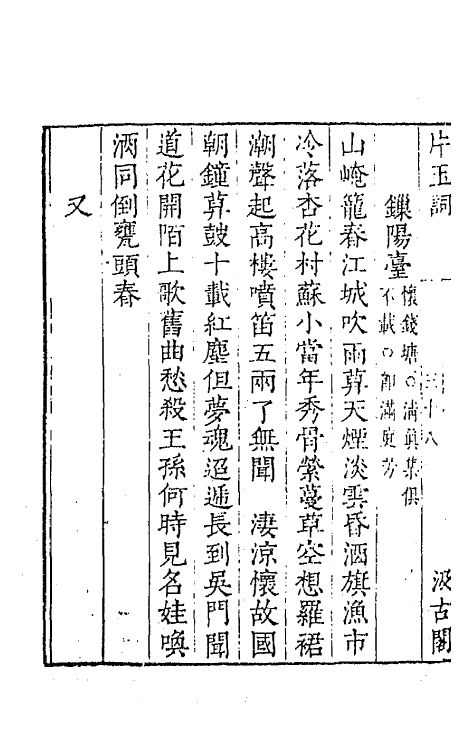 片玉詞
三十八
汲古閣
鏁陽臺
懷錢塘○清眞集俱
不載○卽滿庭芳
山崦籠春江城吹雨暮天煙淡雲昏酒旗漁市
冷落杏花村蘇小當年秀骨縈蔓草空想羅裙
潮聲起高樓噴笛五兩了無聞　凄涼懷故國
朝鐘暮鼓十載紅塵但夢魂迢遞長到吳門聞
道花開陌上歌舊曲愁殺王孫何時見名娃喚
酒同倒甕頭春
又